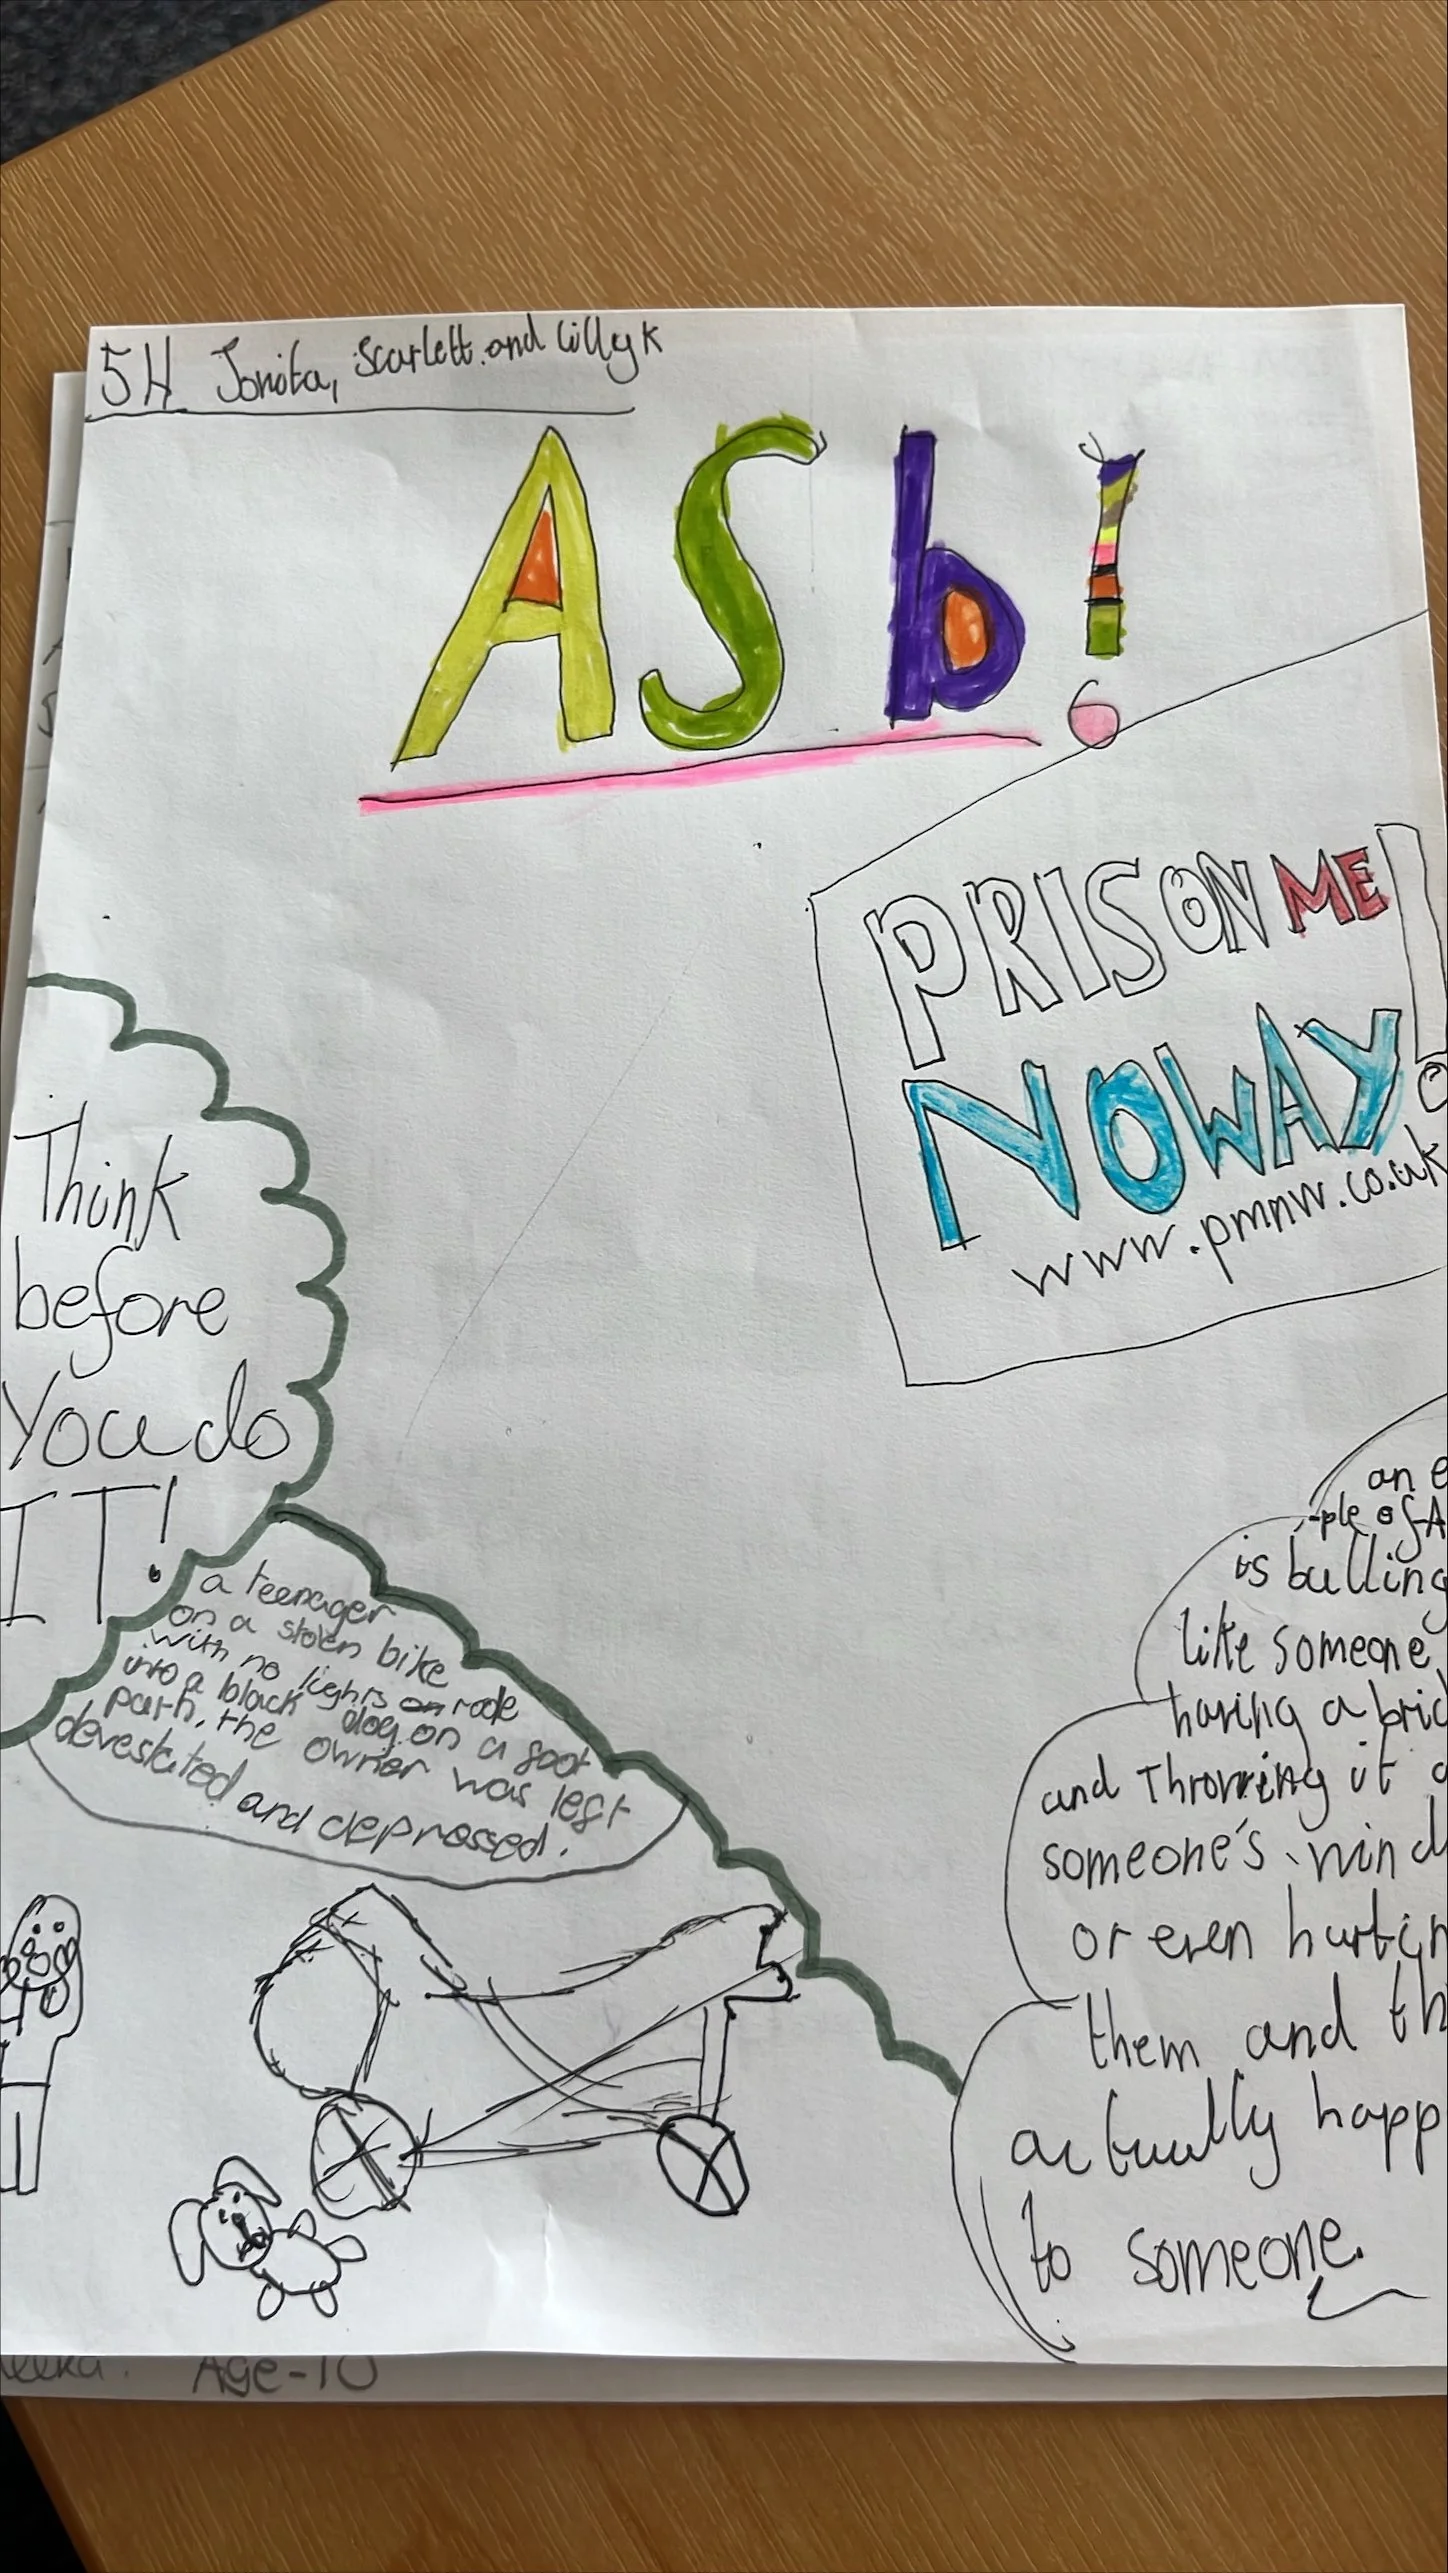 5H Jonita, Scarlett and Lilly K
ASb!
PRISON ME!
NO WAY
www.pmnw.co.uk
Think
before
You do
IT!
a teenager
on a stolen bike
with no lights rode
into a black dog on a foot
path, the owner was left
devestated and depressed.
an e
-ple of A
is bulling
like someone
having a bric
and Throwing it
someone's wind
or even hurtin
them and th
actually happ
to someone.
Age-10